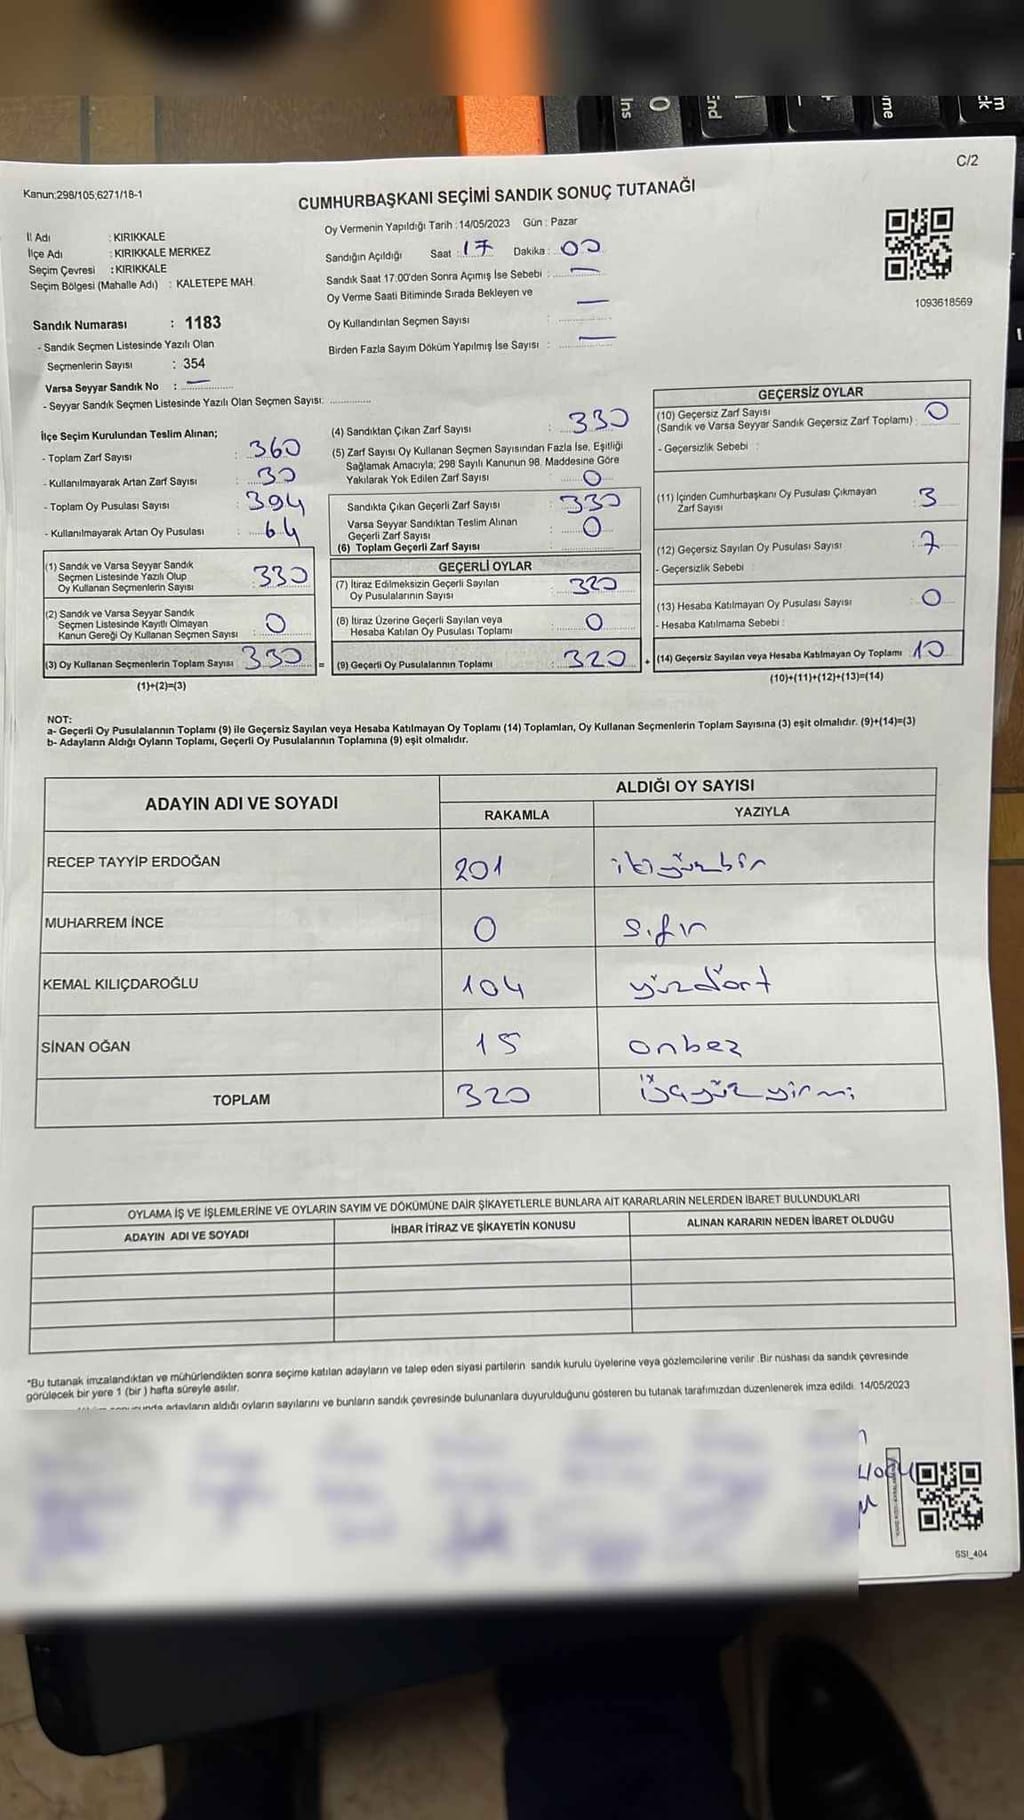 C/2
Kanun:298/105,6271/18-1
CUMHURBAŞKANI SEÇİMİ SANDIK SONUÇ TUTANAĞI
İl Adı : KIRIKKALE
İlçe Adı : KIRIKKALE MERKEZ
Seçim Çevresi : KIRIKKALE
Seçim Bölgesi (Mahalle Adı) : KALETEPE MAH.
Sandık Numarası : 1183
- Sandık Seçmen Listesinde Yazılı Olan
Seçmenlerin Sayısı : 354
Varsa Seyyar Sandık No : —
- Seyyar Sandık Seçmen Listesinde Yazılı Olan Seçmen Sayısı: ..............
Oy Vermenin Yapıldığı Tarih : 14/05/2023 Gün : Pazar
Sandığın Açıldığı Saat : 17 Dakika : 00
Sandık Saat 17.00'den Sonra Açımış İse Sebebi : —
Oy Verme Saati Bitiminde Sırada Bekleyen ve
Oy Kullandırılan Seçmen Sayısı : —
Birden Fazla Sayım Döküm Yapılmış İse Sayısı : —
1093618569
İlçe Seçim Kurulundan Teslim Alınan;
- Toplam Zarf Sayısı : 360
- Kullanılmayarak Artan Zarf Sayısı : 30
- Toplam Oy Pusulası Sayısı : 394
- Kullanılmayarak Artan Oy Pusulası : 64
(1) Sandık ve Varsa Seyyar Sandık
Seçmen Listesinde Yazılı Olup
Oy Kullanan Seçmenlerin Sayısı 330
(2) Sandık ve Varsa Seyyar Sandık
Seçmen Listesinde Kayıtlı Olmayan
Kanun Gereği Oy Kullanan Seçmen Sayısı : 0
(3) Oy Kullanan Seçmenlerin Toplam Sayısı 330 =
(1)+(2)=(3)
(4) Sandıktan Çıkan Zarf Sayısı : 330
(5) Zarf Sayısı Oy Kullanan Seçmen Sayısından Fazla İse, Eşitliği
Sağlamak Amacıyla; 298 Sayılı Kanunun 98. Maddesine Göre
Yakılarak Yok Edilen Zarf Sayısı 0
Sandıkta Çıkan Geçerli Zarf Sayısı : 330
Varsa Seyyar Sandıktan Teslim Alınan
Geçerli Zarf Sayısı : 0
(6) Toplam Geçerli Zarf Sayısı :
GEÇERLİ OYLAR
(7) İtiraz Edilmeksizin Geçerli Sayılan
Oy Pusulalarının Sayısı : 320
(8) İtiraz Üzerine Geçerli Sayılan veya
Hesaba Katılan Oy Pusulası Toplamı : 0
(9) Geçerli Oy Pusulalarının Toplamı : 320 +
GEÇERSİZ OYLAR
(10) Geçersiz Zarf Sayısı
(Sandık ve Varsa Seyyar Sandık Geçersiz Zarf Toplamı) : 0
- Geçersizlik Sebebi :
(11) İçinden Cumhurbaşkanı Oy Pusulası Çıkmayan
Zarf Sayısı : 3
(12) Geçersiz Sayılan Oy Pusulası Sayısı : 7
- Geçersizlik Sebebi :
(13) Hesaba Katılmayan Oy Pusulası Sayısı : 0
- Hesaba Katılmama Sebebi :
(14) Geçersiz Sayılan veya Hesaba Katılmayan Oy Toplamı 10
(10)+(11)+(12)+(13)=(14)
NOT:
a- Geçerli Oy Pusulalarının Toplamı (9) ile Geçersiz Sayılan veya Hesaba Katılmayan Oy Toplamı (14) Toplamları, Oy Kullanan Seçmenlerin Toplam Sayısına (3) eşit olmalıdır. (9)+(14)=(3)
b- Adayların Aldığı Oyların Toplamı, Geçerli Oy Pusulalarının Toplamına (9) eşit olmalıdır.
ADAYIN ADI VE SOYADI ALDIĞI OY SAYISI
RAKAMLA YAZIYLA
RECEP TAYYİP ERDOĞAN 201 ikiyüzbir
MUHARREM İNCE 0 sıfır
KEMAL KILIÇDAROĞLU 104 yüzdört
SİNAN OĞAN 15 onbeş
TOPLAM 320 üçyüzyirmi
OYLAMA İŞ VE İŞLEMLERİNE VE OYLARIN SAYIM VE DÖKÜMÜNE DAİR ŞİKAYETLERLE BUNLARA AİT KARARLARIN NELERDEN İBARET BULUNDUKLARI
ADAYIN ADI VE SOYADI İHBAR İTİRAZ VE ŞİKAYETİN KONUSU ALINAN KARARIN NEDEN İBARET OLDUĞU
*Bu tutanak imzalandıktan ve mühürlendikten sonra seçime katılan adayların ve talep eden siyasi partilerin sandık kurulu üyelerine veya gözlemcilerine verilir .Bir nüshası da sandık çevresinde
görülecek bir yere 1 (bir ) hafta süreyle asılır.
adayların aldığı oyların sayılarını ve bunların sandık çevresinde bulunanlara duyurulduğunu gösteren bu tutanak tarafımızdan düzenlenerek imza edildi. 14/05/2023
SSI_404